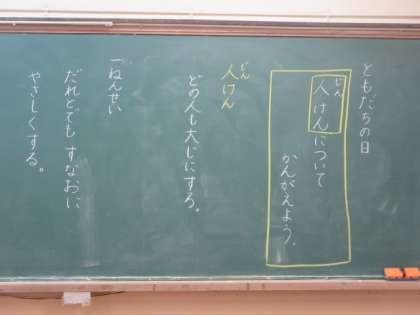 ともだちの日
人けんについて
じん
かんがえよう。
人けん
じん
どの人も大じにする。
一ねんせい
だれとでも すなおに
やさしくする。